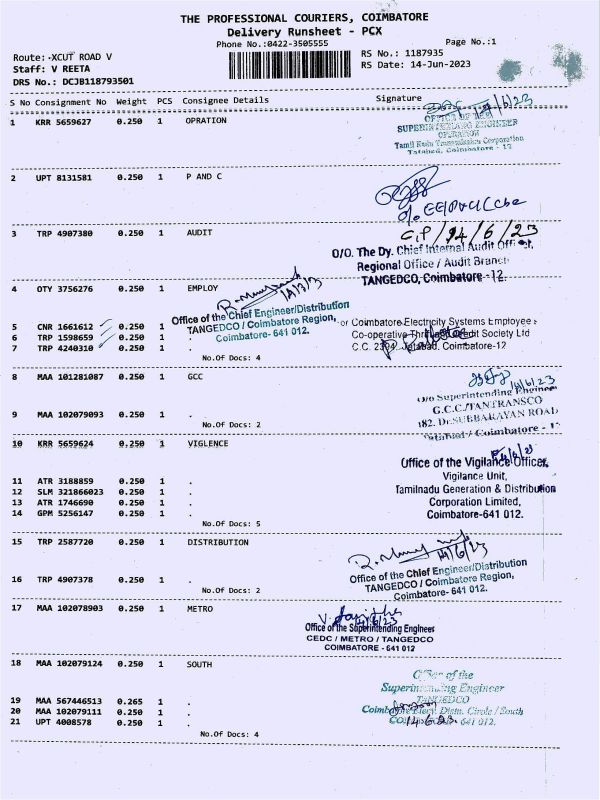 THE PROFESSIONAL COURIERS, COIMBATORE
Delivery Runsheet - PCX
Phone No.:0422-3505555
Page No.:1
Route: -XCUT ROAD V
RS No.: 1187935
Staff: V REETA
RS Date: 14-Jun-2023
DRS No.: DCJB118793501
S No Consignment No Weight PCS Consignee Details Signature
1 KRR 5659627 0.250 1 OPRATION
OFFICE OF THE
SUPERINTENDING ENGINEER
OPERATION
Tamil Nadu Transmission Corporation
Tatabad, Coimbatore - 12
2 UPT 8131581 0.250 1 P AND C
3 TRP 4907380 0.250 1 AUDIT
14/6/23
O/O. The Dy. Chief Internal Audit Officer,
Regional Office / Audit Branch
TANGEDCO, Coimbatore -12.
4 OTY 3756276 0.250 1 EMPLOY
Office of the Chief Engineer/Distribution
TANGEDCO / Coimbatore Region,
Coimbatore- 641 012.
5 CNR 1661612 0.250 1 .
or Coimbatore Electricity Systems Employees
6 TRP 1598659 0.250 1 .
Co-operative Thrift Credit Society Ltd
7 TRP 4240310 0.250 1 .
C.C. 2394 Tatabad, Coimbatore-12
No.Of Docs: 4
8 MAA 101281087 0.250 1 GCC
14/6/23
O/o Superintending Engineer
G.C.C./TANTRANSCO
182, Dr.SUBBARAYAN ROAD
Tatabad / Coimbatore - 1
9 MAA 102079093 0.250 1 .
No.Of Docs: 2
10 KRR 5659624 0.250 1 VIGLENCE
Office of the Vigilance Officer,
Vigilance Unit,
Tamilnadu Generation & Distribution
Corporation Limited,
Coimbatore-641 012.
11 ATR 3188859 0.250 1 .
12 SLM 321866023 0.250 1 .
13 ATR 1746690 0.250 1 .
14 GPM 5256147 0.250 1 .
No.Of Docs: 5
15 TRP 2587720 0.250 1 DISTRIBUTION
14/6/23
Office of the Chief Engineer/Distribution
TANGEDCO / Coimbatore Region,
Coimbatore- 641 012.
16 TRP 4907378 0.250 1 .
No.Of Docs: 2
17 MAA 102078903 0.250 1 METRO
Office of the Superintending Engineer
CEDC / METRO / TANGEDCO
COIMBATORE - 641 012
18 MAA 102079124 0.250 1 SOUTH
Office of the
Superintending Engineer
TANGEDCO
Coimbatore Elecy. Distn. Circle / South
641 012.
14.6.23
19 MAA 567446513 0.265 1 .
20 MAA 102079111 0.250 1 .
21 UPT 4008578 0.250 1 .
No.Of Docs: 4